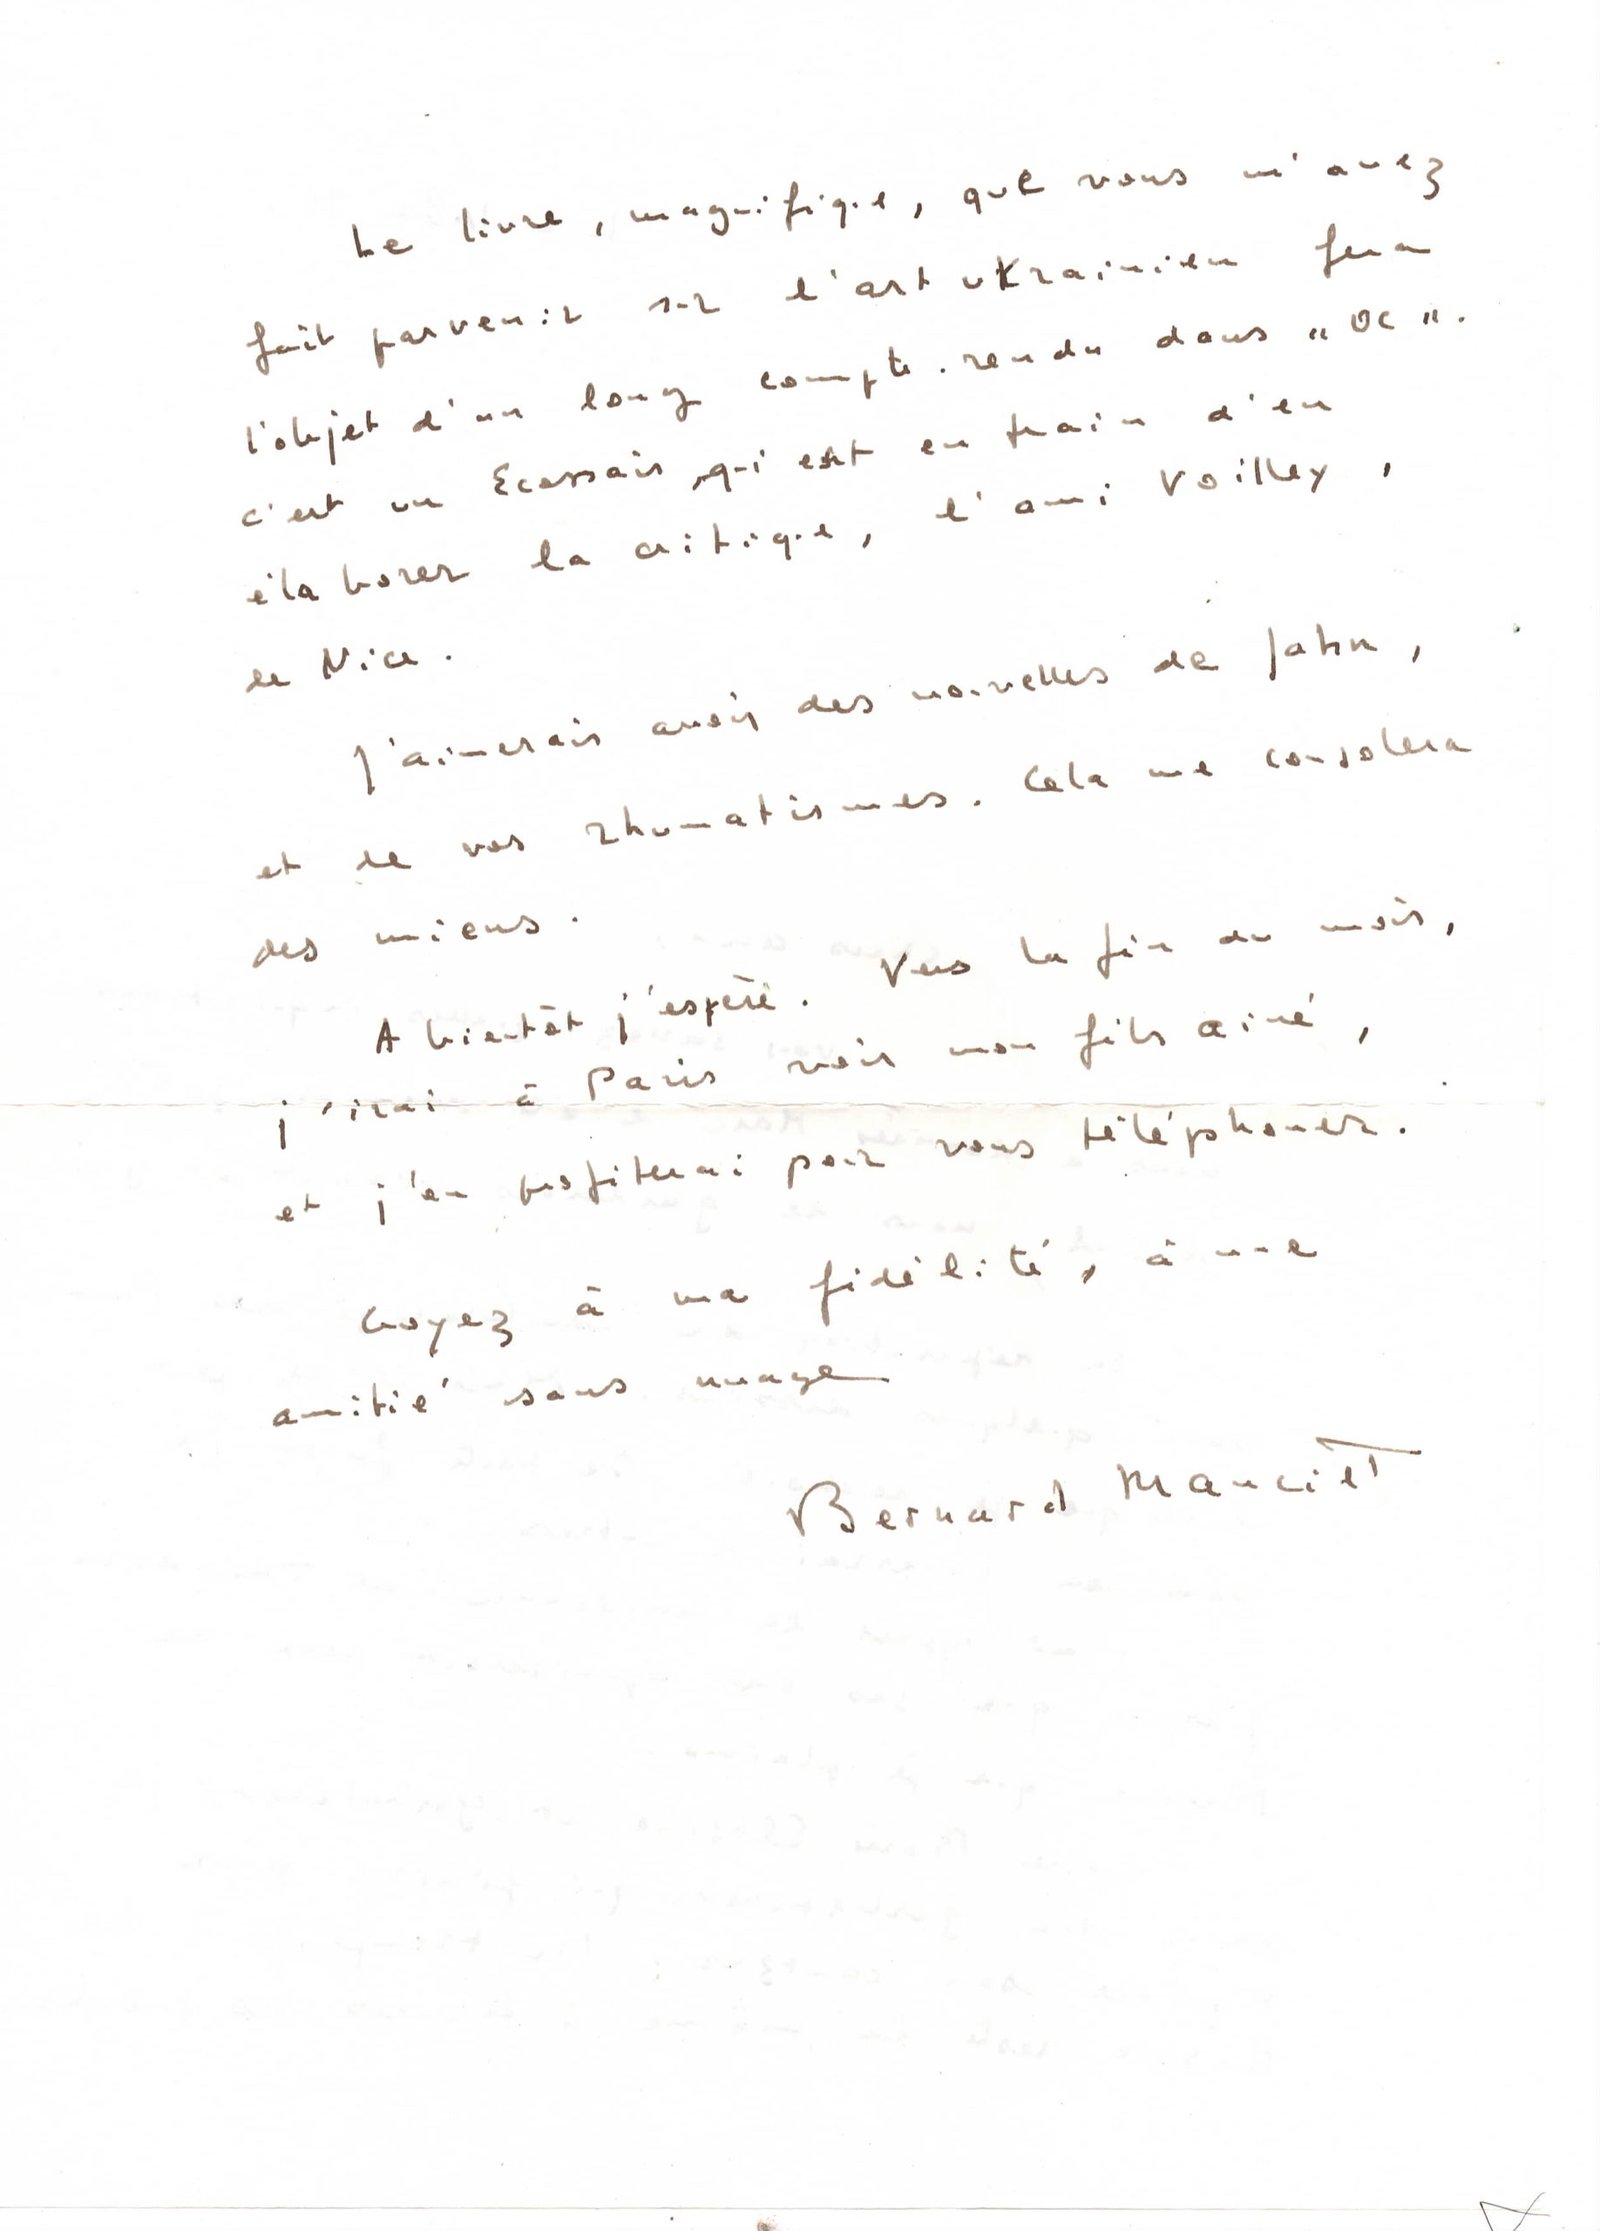 Le livre, magnifique, que vous m'avez
fait parvenir sur l'art ukrainien fera
l'objet d'un long compte-rendu dans "OC".
c'est un Ecossais, qui est en train d'en
élaborer la critique, l'ami Voilley,
de Nice.
J'aimerais avoir des nouvelles de Jahn,
et de vos rhumatismes. Cela me consolera
des miens.
A bientôt j'espère. Vers la fin du mois,
j'irai à Paris voir mon fils ainé,
et j'en profiterai pour vous téléphoner.
Croyez à ma fidélité, à une
amitié sans nuage
Bernard Manciet